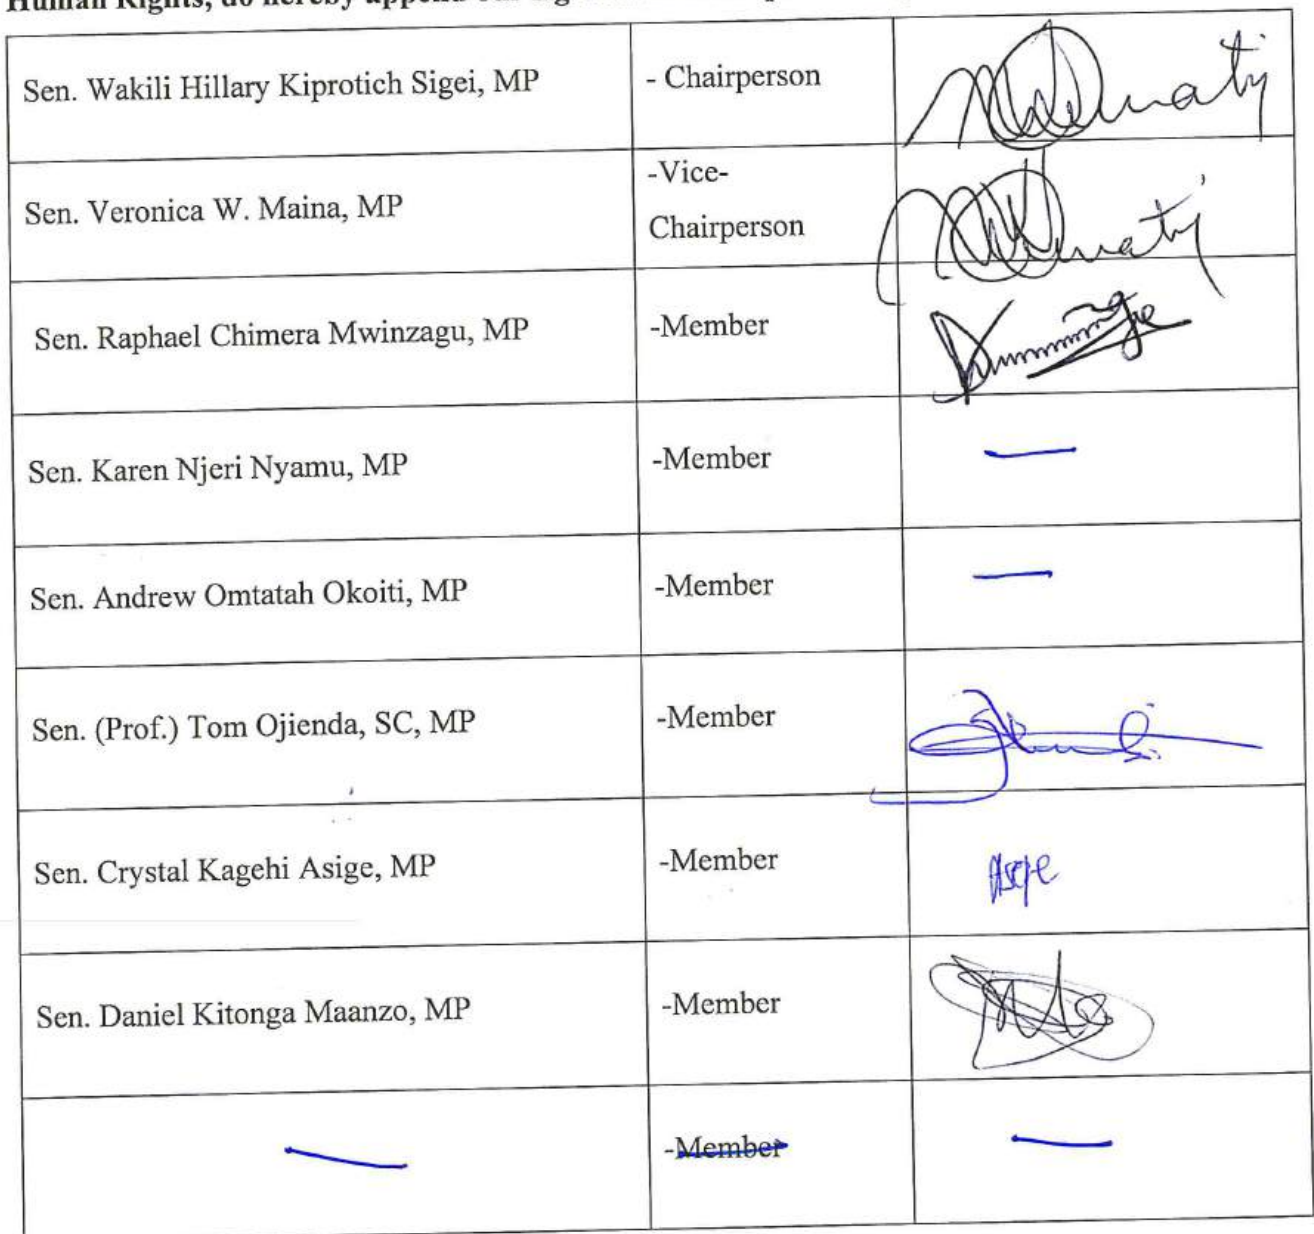 Human Rights, do hereby append our
Sen. Wakili Hillary Kiprotich Sigei, MP - Chairperson
Sen. Veronica W. Maina, MP -Vice-
Chairperson
Sen. Raphael Chimera Mwinzagu, MP -Member
Sen. Karen Njeri Nyamu, MP -Member —
Sen. Andrew Omtatah Okoiti, MP -Member —
Sen. (Prof.) Tom Ojienda, SC, MP -Member
Sen. Crystal Kagehi Asige, MP -Member
Sen. Daniel Kitonga Maanzo, MP -Member
— -Member —